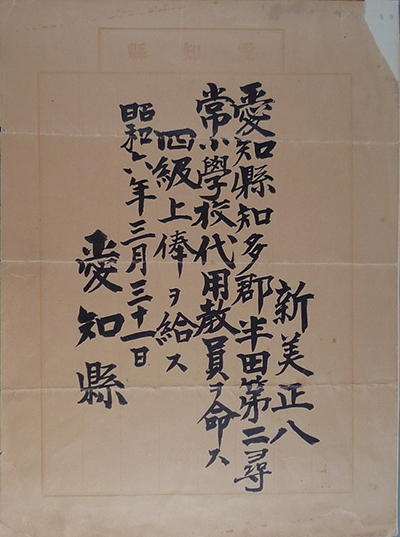 縣知愛
新美正八
愛知縣知多郡半田第二尋
常小學校代用教員ヲ命ス
四級上俸ヲ給ス
昭和六年三月三十一日
愛知縣